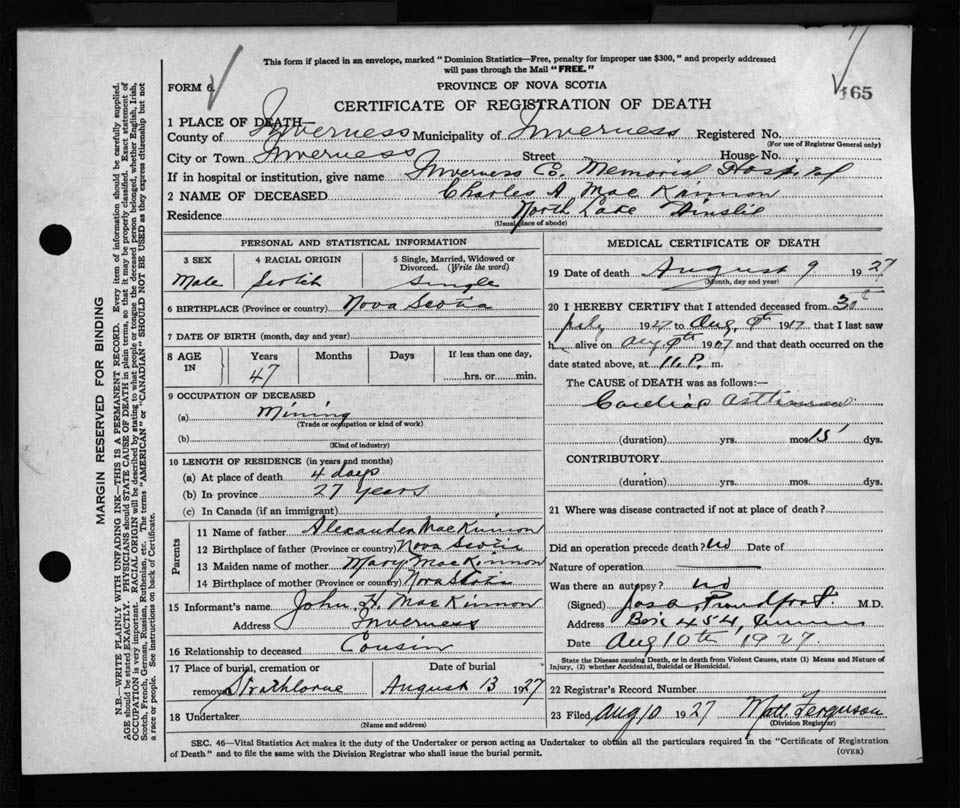 This form if placed in an envelope, marked "Dominion Statistics—Free, penalty for improper use $300," and properly addressed
will pass through the Mail "FREE."
FORM 6.
PROVINCE OF NOVA SCOTIA
165
CERTIFICATE OF REGISTRATION OF DEATH
1 PLACE OF DEATH—
County of Inverness Municipality of Inverness Registered No.
(For use of Registrar General only)
City or Town Inverness Street House No.
If in hospital or institution, give name Inverness Co. Memorial Hospital
2 NAME OF DECEASED Charles A. MacKinnon
Residence North Lake Ainslie
(Usual place of abode)
PERSONAL AND STATISTICAL INFORMATION
3 SEX 4 RACIAL ORIGIN 5 Single, Married, Widowed or
Divorced. (Write the word)
Male Scotch Single
6 BIRTHPLACE (Province or country) Nova Scotia
7 DATE OF BIRTH (month, day and year)
8 AGE IN Years Months Days If less than one day,
47 hrs. or min.
9 OCCUPATION OF DECEASED
(a) Mining
(Trade or occupation or kind of work)
(b)
(Kind of industry)
10 LENGTH OF RESIDENCE (in years and months)
(a) At place of death 4 days
(b) In province 27 years
(c) In Canada (if an immigrant)
Parents
11 Name of father Alexander MacKinnon
12 Birthplace of father (Province or country) Nova Scotia
13 Maiden name of mother Mary MacKinnon
14 Birthplace of mother (Province or country) Nova Scotia
15 Informant's name John H. MacKinnon
Address Inverness
16 Relationship to deceased Cousin
17 Place of burial, cremation or Date of burial
removal Strathlorne August 13 1927
18 Undertaker
(Name and address)
MEDICAL CERTIFICATE OF DEATH
19 Date of death August 9 1927
(Month, day and year)
20 I HEREBY CERTIFY that I attended deceased from 30th
July 1927 to Aug. 1917 that I last saw
h alive on Aug 1907 and that death occurred on the
date stated above, at 11.P. m.
The CAUSE of DEATH was as follows:—
Cardiac
(duration) yrs. mos. 15 dys.
CONTRIBUTORY
(duration) yrs. mos. dys.
21 Where was disease contracted if not at place of death?
Did an operation precede death? No Date of
Nature of operation
Was there an autopsy? No
(Signed) Proudfoot M.D.
Address Box 454,
Date Aug 10th, 1927.
State the Disease causing Death, or in death from Violent Causes, state (1) Means and Nature of
Injury, (2) whether Accidental, Suicidal or Homicidal.
22 Registrar's Record Number
23 Filed Aug 10 1927 Matt. Ferguson
(Division Registrar)
SEC. 46—Vital Statistics Act makes it the duty of the Undertaker or person acting as Undertaker to obtain all the particulars required in the "Certificate of Registration
of Death" and to file the same with the Division Registrar who shall issue the burial permit.
(OVER)
MARGIN RESERVED FOR BINDING
N.B.—WRITE PLAINLY WITH UNFADING INK—THIS IS A PERMANENT RECORD. Every item of information should be carefully supplied.
AGE should be stated EXACTLY. PHYSICIANS should STATE CAUSE OF DEATH in plain terms, so that it may be properly classified. Exact statement of
OCCUPATION is very important. RACIAL ORIGIN will be described by stating to what people or tongue the deceased person belonged, whether English, Irish,
Scotch, French, German, Russian, Ruthenian, etc. The terms "AMERICAN" or "CANADIAN" SHOULD NOT BE USED as they express citizenship but not
a race or people. See instructions on back of Certificate.